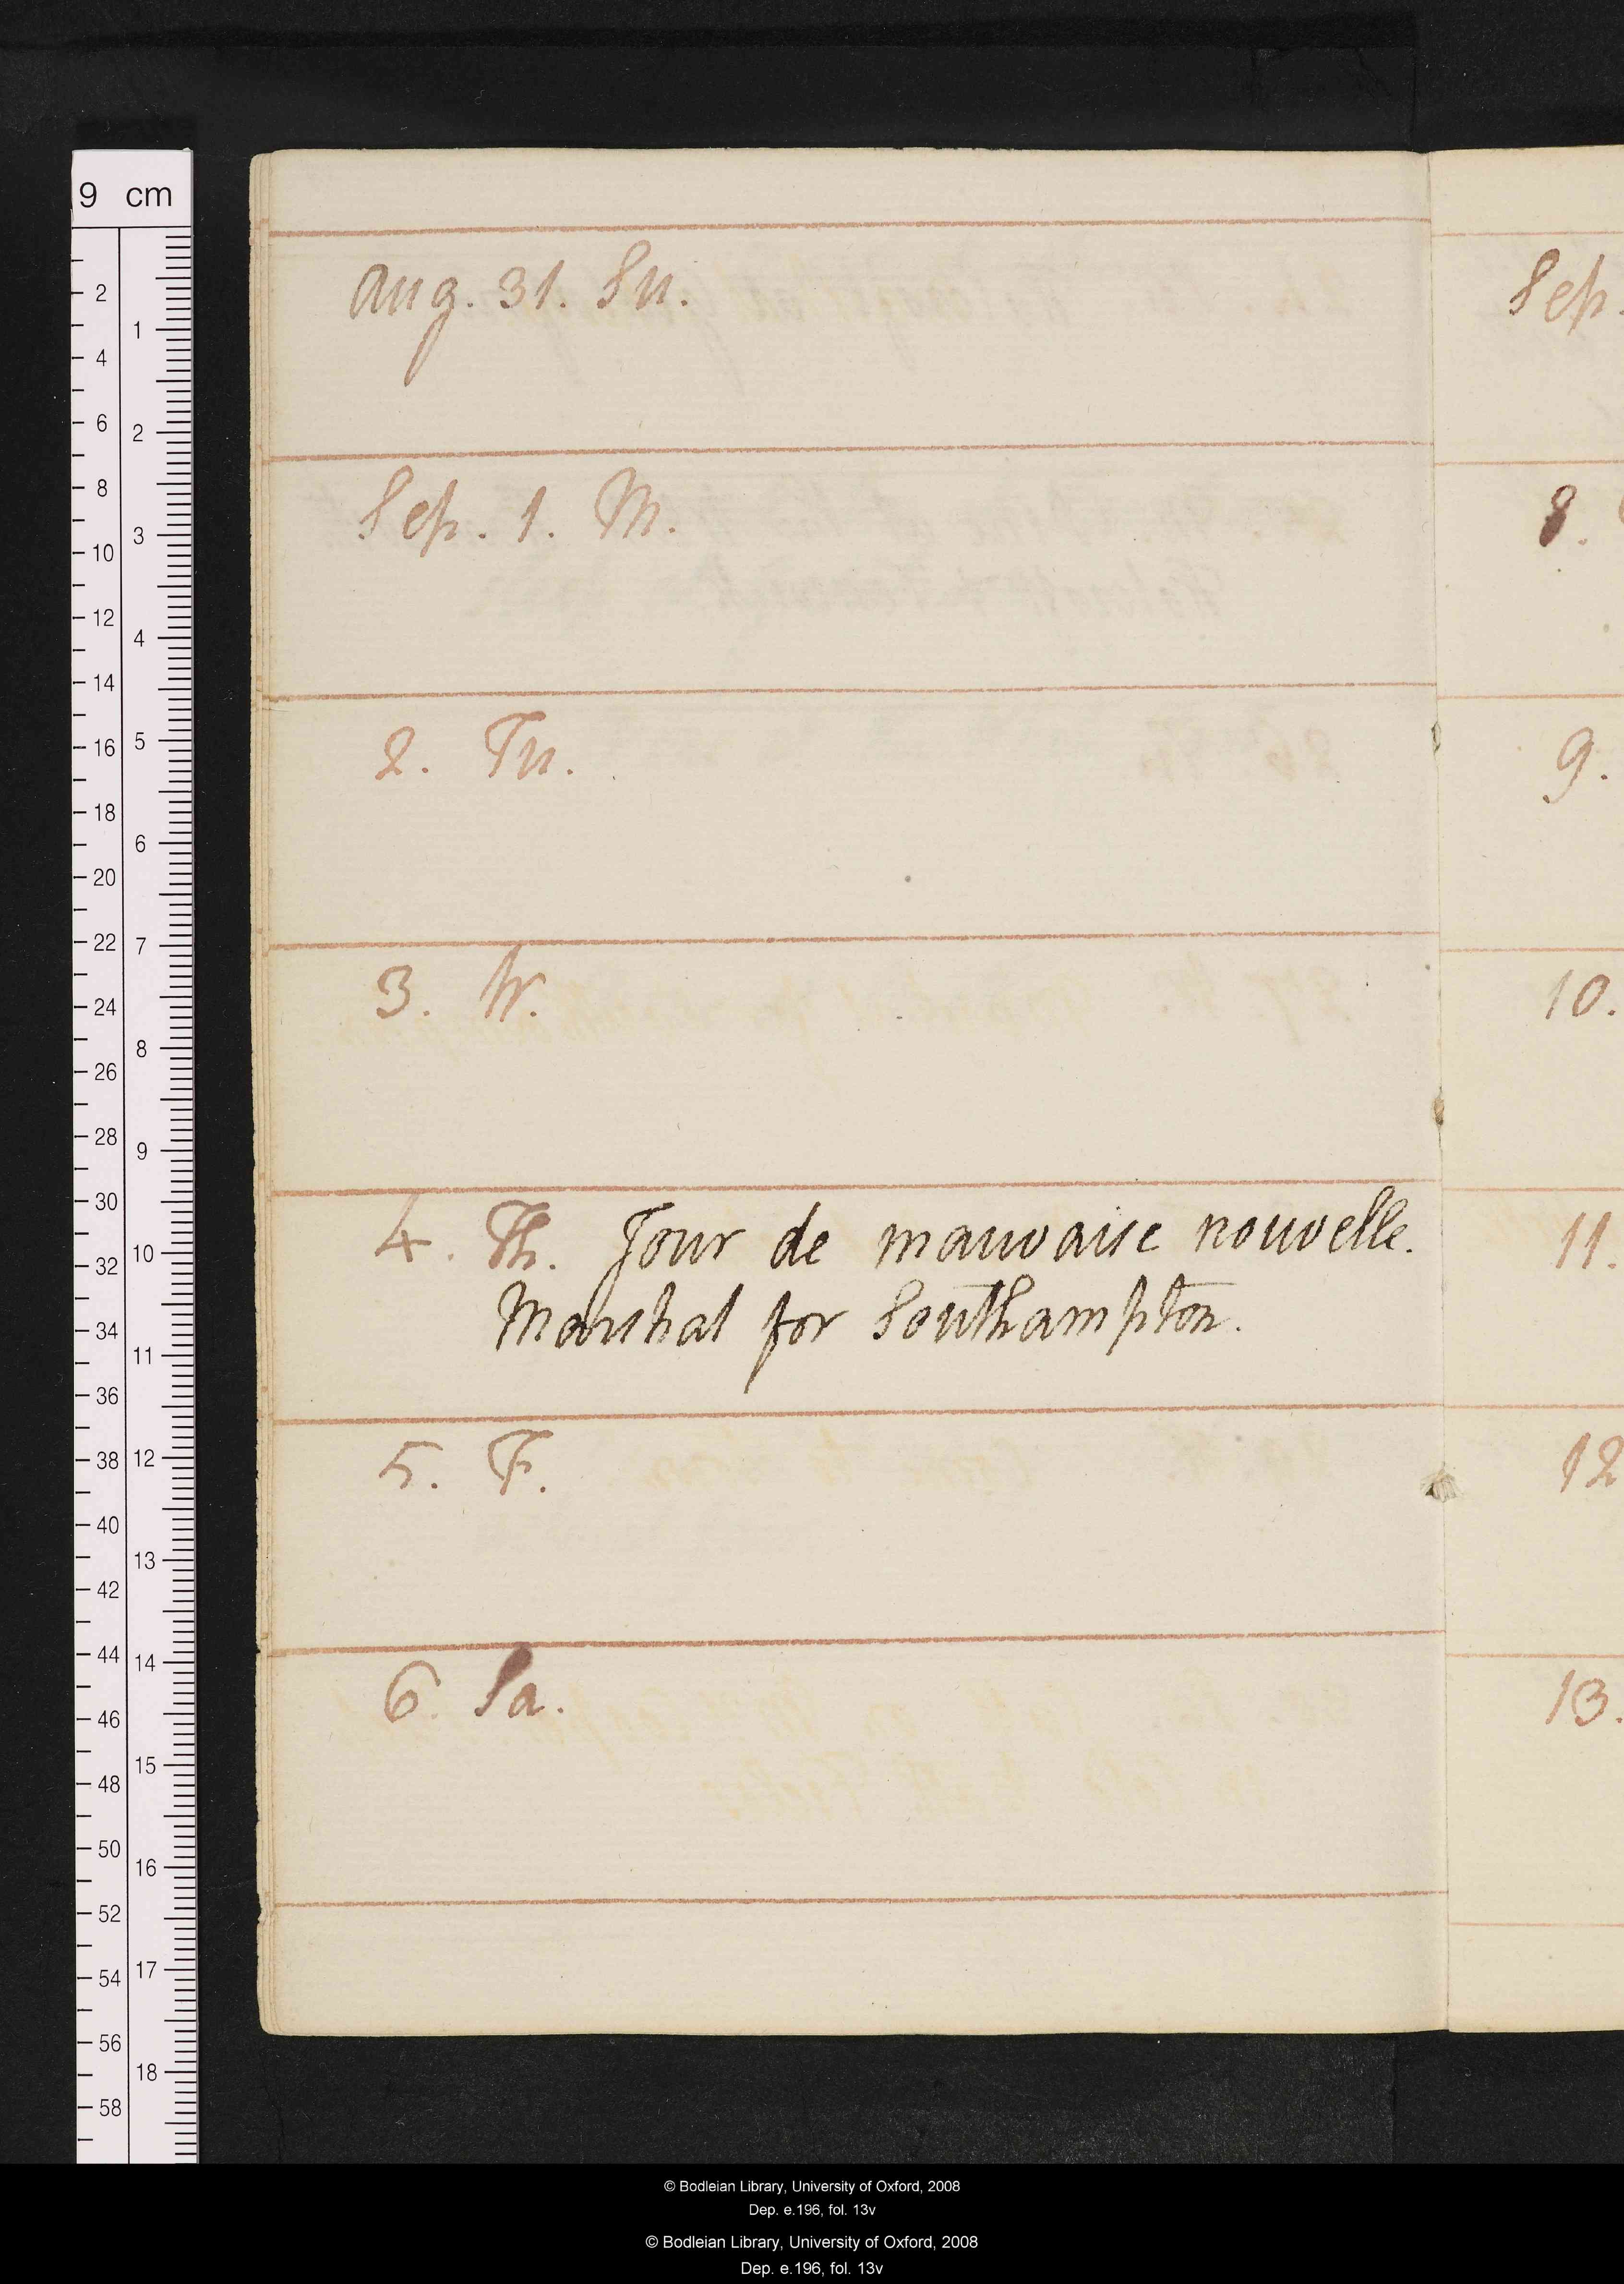 Aug. 31. Su.
Sep. 1. M.
2. Tu.
3. W.
4. Th. Jour de mauvaise nouvelle.
Marshal for Southampton.
5. F.
6. Sa.
Sep.
8.
9.
10.
11.
12
13.
9 cm
2
4
6
8
10
12
14
16
18
20
22
24
26
28
30
32
34
36
38
40
42
44
46
48
50
52
54
56
58
1
2
3
4
5
6
7
8
9
10
11
12
13
14
15
16
17
18
© Bodleian Library, University of Oxford, 2008
Dep. e.196, fol. 13v
© Bodleian Library, University of Oxford, 2008
Dep. e.196, fol. 13v